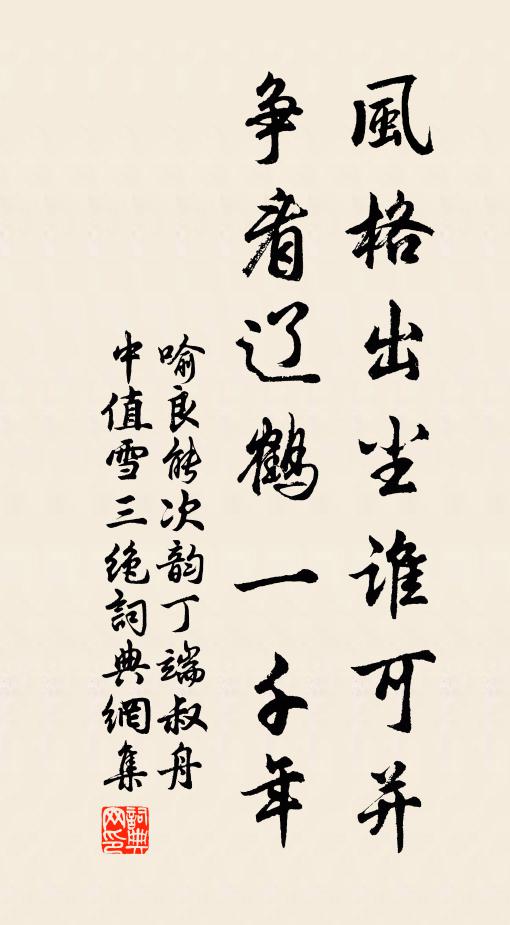 風格出尘谁可并
争看辽鹤一千年
喻良能次韵丁端叔舟
中值雪三绝詞典網集
詞典网印